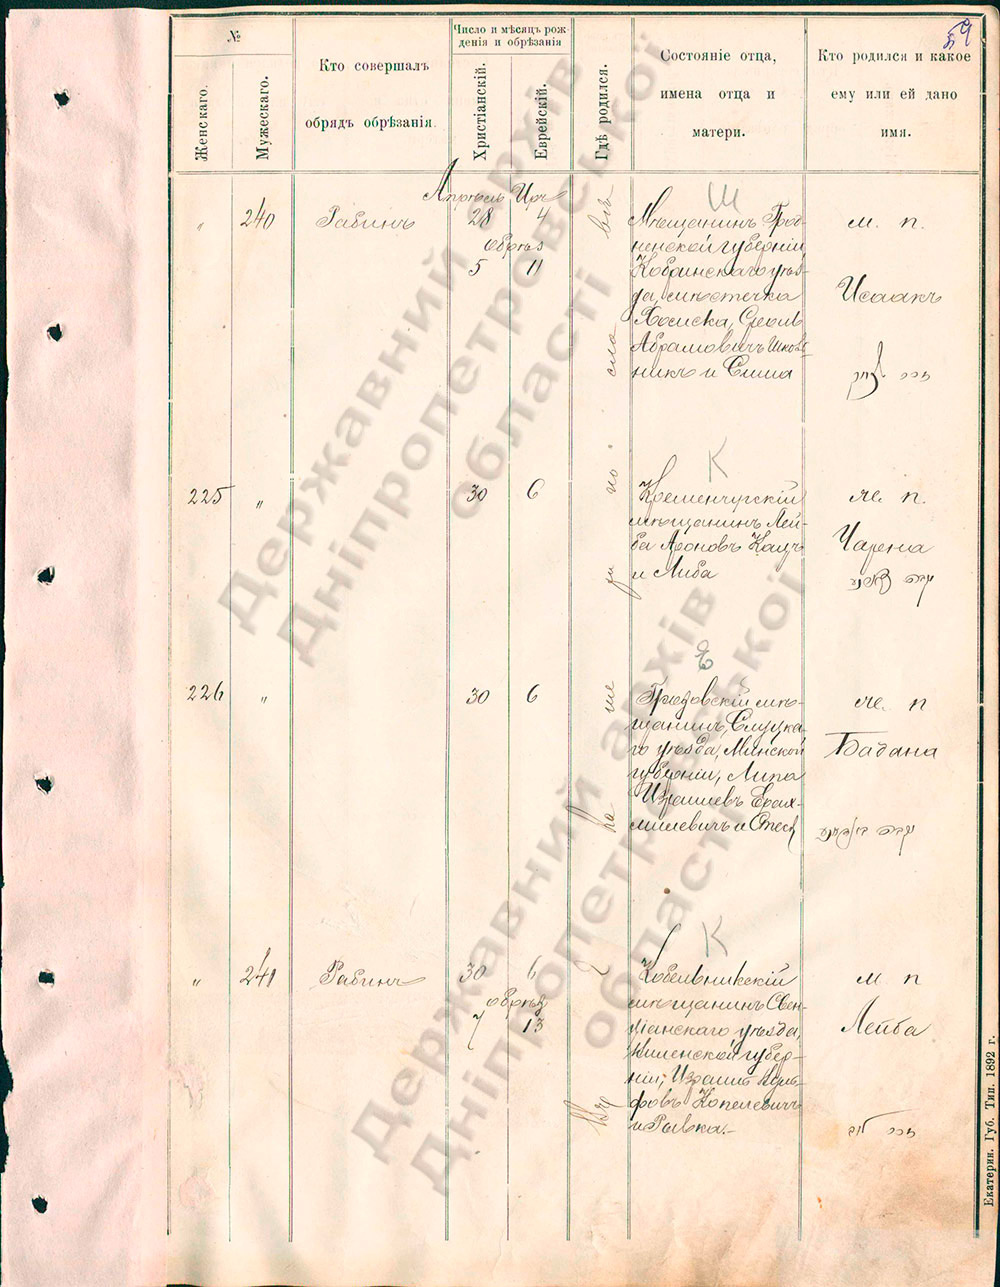 59
№
Женскаго.
Мужескаго.
Кто совершалъ
обрядъ обрѣзанія.
Число и мѣсяцъ рож-
денія и обрѣзанія
Христіанскій.
Еврейскій.
Гдѣ родился.
Состояніе отца,
имена отца и
матери.
Кто родился и какое
ему или ей дано
имя.
Апрѣль Иръ
„ 240 Рабинъ 28 4
Обрѣз
5 11
Ш
Мѣщанинъ Грод-
ненской губерніи
Кобринскаго уѣз-
да, мѣстечка
Хомска, Сроль
Абрамовичъ Шков-
никъ и Сима
м. п.
Исаакъ
זכר יצחק
225 „ 30 6
К
Кременчугскій
мѣщанинъ Лей-
ба Ароновъ Кацъ
и Либа
же. п.
Чарна
226 „ 30 6
Е
мѣ-
щанинъ, Слуцка-
го уѣзда, Минской
губерніи, Липа
Израилевъ Ерах-
милевичъ и Стеся
же. п
Бадана
„ 241 Рабинъ 30 6
Обрѣз
7 13
К
Кобыльникскій
мѣщанинъ Свен-
ціанскаго уѣзда,
Виленской губер-
ніи, Израиль Воль-
фовъ Копелевичъ
и Рывка.-
м п
Лейба
זכר לייב
Екатерин. Губ. Тип. 1892 г.
Державний архів
Дніпропетровської
області
Державний архів
Дніпропетровської
області